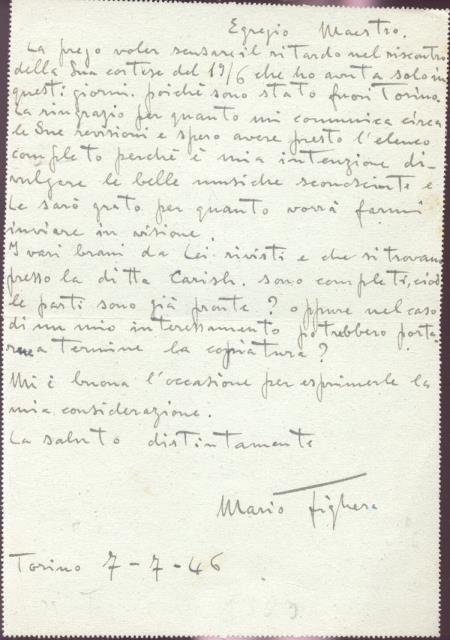 Egregio Maestro.
La prego voler scusare il ritardo nel riscontro
della Sua cortese del 19/6 che ho avuta solo in
questi giorni. poiché sono stato fuori Torino.
La ringrazio per quanto mi comunica circa
le Sue revisioni e spero avere presto l'elenco
completo perchè è mia intenzione di-
vulgere le belle musiche sconosciute e
Le sarò grato per quanto vorrà farmi
inviare in visione.
I vari brani da Lei rivisti e che si trovano
presso la ditta Carish. sono completi, cioè
le parti sono già pronte? oppure nel caso
di un mio interessamento potrebbero porta-
re a termine la copiatura?
Mi è buona l'occasione per esprimerle la
mia considerazione.
La saluto distintamente
Mario Fighera
Torino 7-7-46